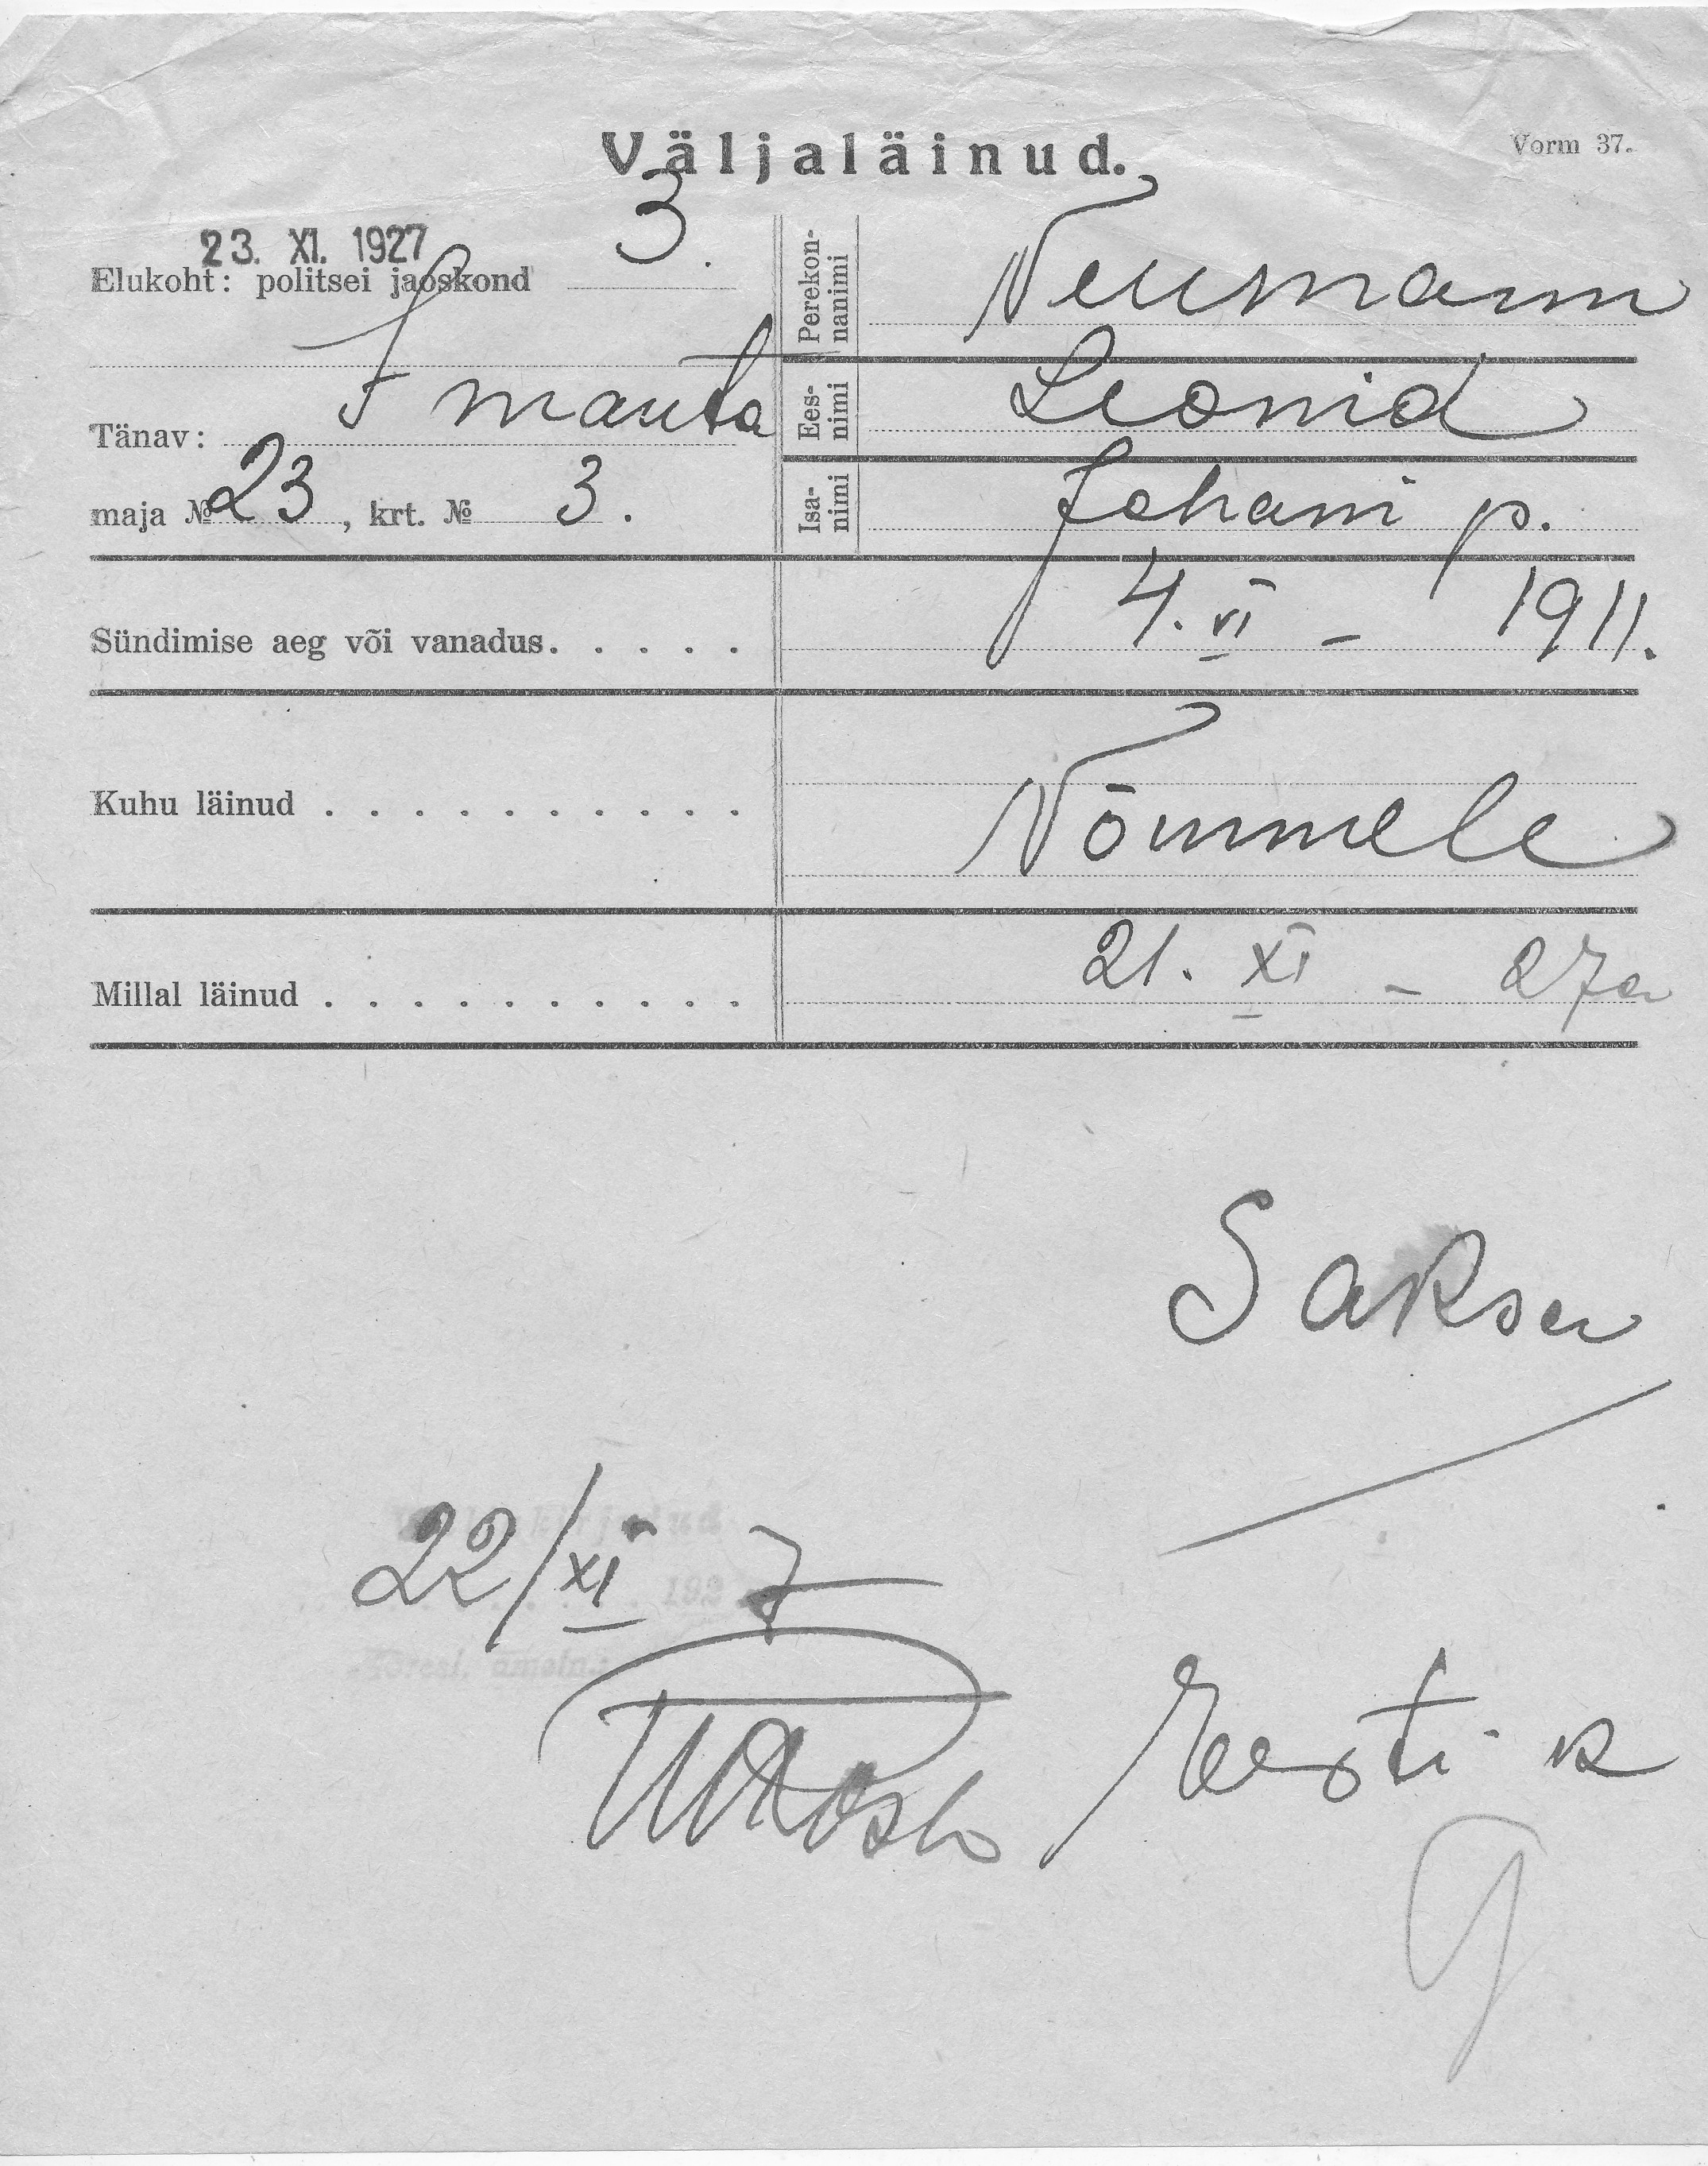 Väljaläinud.
Vorm 37.
23. XI. 1927
Elukoht: politsei jaoskond 3.
Tänav: J manta
maja № 23, krt. № 3.
Perekonnanimi Neumann
Eesnimi Leonid
Isanimi Johani p.
Sündimise aeg või vanadus. . . . . . 4. VI – 1911.
Kuhu läinud . . . . . . . . . . Nõmmele
Millal läinud . . . . . . . . . . 21. XI – 27a
Saksa
22/XI 7
192
Eesti k